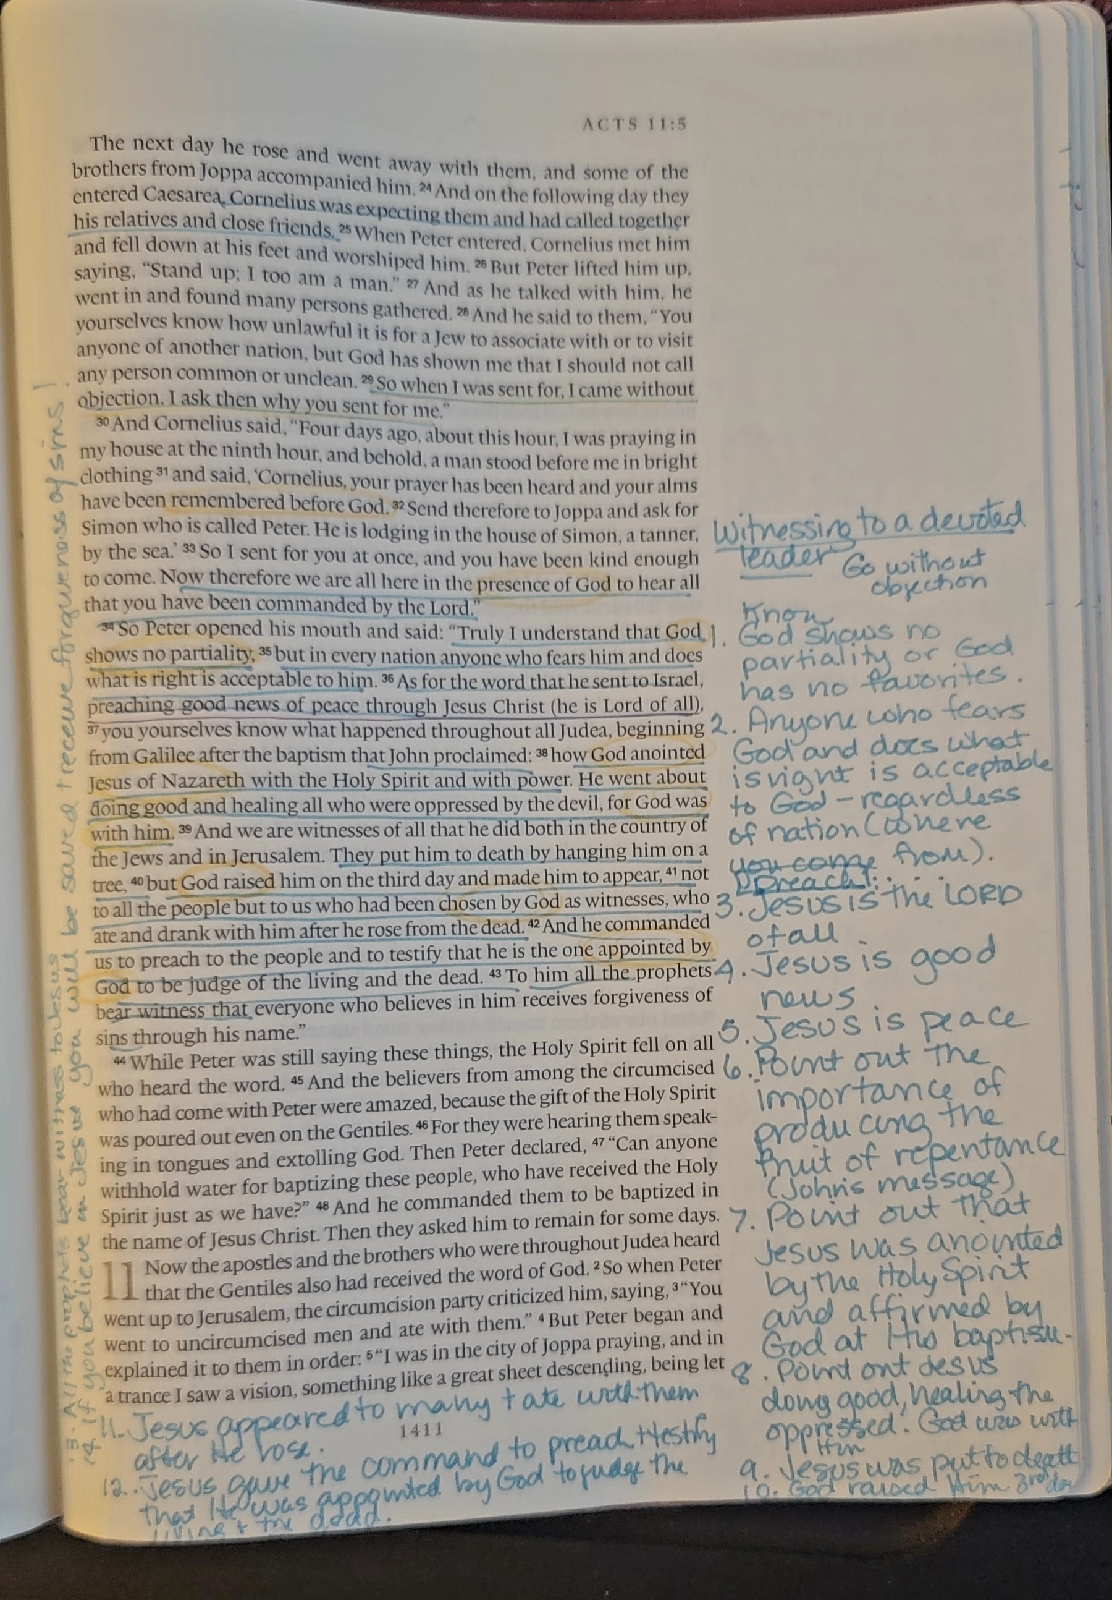 ACTS 11:5
The next day he rose and went away with them, and some of the
brothers from Joppa accompanied him. 24 And on the following day they
entered Caesarea. Cornelius was expecting them and had called together
his relatives and close friends. 25 When Peter entered, Cornelius met him
and fell down at his feet and worshiped him. 26 But Peter lifted him up,
saying, “Stand up; I too am a man.” 27 And as he talked with him, he
went in and found many persons gathered. 28 And he said to them, “You
yourselves know how unlawful it is for a Jew to associate with or to visit
anyone of another nation, but God has shown me that I should not call
any person common or unclean. 29 So when I was sent for, I came without
objection. I ask then why you sent for me.”
30 And Cornelius said, “Four days ago, about this hour, I was praying in
my house at the ninth hour, and behold, a man stood before me in bright
clothing 31 and said, ‘Cornelius, your prayer has been heard and your alms
have been remembered before God. 32 Send therefore to Joppa and ask for
Simon who is called Peter. He is lodging in the house of Simon, a tanner,
by the sea.’ 33 So I sent for you at once, and you have been kind enough
to come. Now therefore we are all here in the presence of God to hear all
that you have been commanded by the Lord.”
34 So Peter opened his mouth and said: “Truly I understand that God
shows no partiality, 35 but in every nation anyone who fears him and does
what is right is acceptable to him. 36 As for the word that he sent to Israel,
preaching good news of peace through Jesus Christ (he is Lord of all),
37 you yourselves know what happened throughout all Judea, beginning
from Galilee after the baptism that John proclaimed: 38 how God anointed
Jesus of Nazareth with the Holy Spirit and with power. He went about
doing good and healing all who were oppressed by the devil, for God was
with him. 39 And we are witnesses of all that he did both in the country of
the Jews and in Jerusalem. They put him to death by hanging him on a
tree, 40 but God raised him on the third day and made him to appear, 41 not
to all the people but to us who had been chosen by God as witnesses, who
ate and drank with him after he rose from the dead. 42 And he commanded
us to preach to the people and to testify that he is the one appointed by
God to be judge of the living and the dead. 43 To him all the prophets
bear witness that everyone who believes in him receives forgiveness of
sins through his name.”
44 While Peter was still saying these things, the Holy Spirit fell on all
who heard the word. 45 And the believers from among the circumcised
who had come with Peter were amazed, because the gift of the Holy Spirit
was poured out even on the Gentiles. 46 For they were hearing them speak-
ing in tongues and extolling God. Then Peter declared, 47 “Can anyone
withhold water for baptizing these people, who have received the Holy
Spirit just as we have?” 48 And he commanded them to be baptized in
the name of Jesus Christ. Then they asked him to remain for some days.
11 Now the apostles and the brothers who were throughout Judea heard
that the Gentiles also had received the word of God. 2 So when Peter
went up to Jerusalem, the circumcision party criticized him, saying, 3 “You
went to uncircumcised men and ate with them.” 4 But Peter began and
explained it to them in order: 5 “I was in the city of Joppa praying, and in
a trance I saw a vision, something like a great sheet descending, being let
1411
Witnessing to a devoted
leader
Go without
objection
Know
1. God shows no
partiality or God
has no favorites.
2. Anyone who fears
God and does what
is right is acceptable
to God - regardless
of nation (where
you come from).
Preach:
3. Jesus is the LORD
of all
4. Jesus is good
news
5. Jesus is peace
6. Point out the
importance of
producing the
fruit of repentance
(John's message)
7. Point out that
Jesus was anointed
by the Holy Spirit
and affirmed by
God at His baptism.
8. Point out Jesus
doing good, healing the
oppressed. God was with
Him
9. Jesus was put to death
10. God raised Him 3rd day
11. Jesus appeared to many + ate with them
after He rose.
12. Jesus gave the command to preach, + testify
that He was appointed by God to judge the
living + the dead.
13. All the prophets bear witness to Jesus
14. if you believe in Jesus you will be saved + receive forgiveness of sins!